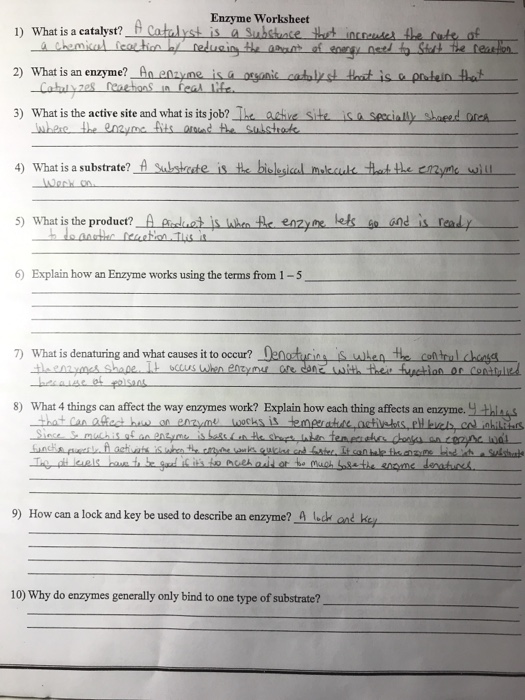 Enzyme Worksheet
1) What is a catalyst? A Catalyst is a substance that increases the rate of
a chemical reaction by reducing the amount of energy need to start the reaction
2) What is an enzyme? An enzyme is a organic catalyst that is a protein that
Catalyzes reactions in real life.
3) What is the active site and what is its job? The active site is a specially shaped area
where the enzyme fits around the substrate
4) What is a substrate? A Substrate is the biological molecule that the enzyme will
Work on.
5) What is the product? A product is when the enzyme lets go and is ready
to do another reaction. This is
6) Explain how an Enzyme works using the terms from 1 – 5
7) What is denaturing and what causes it to occur? Denaturing is when the control changes
the enzymes shape. It occurs when enzymes are done with their function or
because of poisons
8) What 4 things can affect the way enzymes work? Explain how each thing affects an enzyme. 4 things
that can affect how an enzyme works is temperature, activators, pH levels, and inhibitors
Since so much is of an enzyme is based on the shape, when temperature changes an enzyme wont
function properly. A activate is when the enzyme works quicker and faster. It can help the enzyme bind with a substrate
The pH levels have to be good if it's too much acid or too much base the enzyme denatures.
9) How can a lock and key be used to describe an enzyme? A lock and key
10) Why do enzymes generally only bind to one type of substrate?